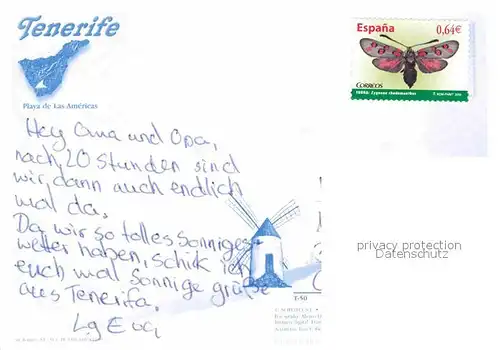 Tenerife
Playa de Las Américas
España
0,64€
CORREOS
FAUNA: Zygaena rhadamanthus
Hey Oma und Opa,
nach 20 Stunden sind
wir dann auch endlich
mal da.
Da wir so tolles sonniges
wetter haben, schik ich
euch mal sonnige grüße
aus Tenerifa.
Lg Eva
privacy protection
Datenschutz
T-50